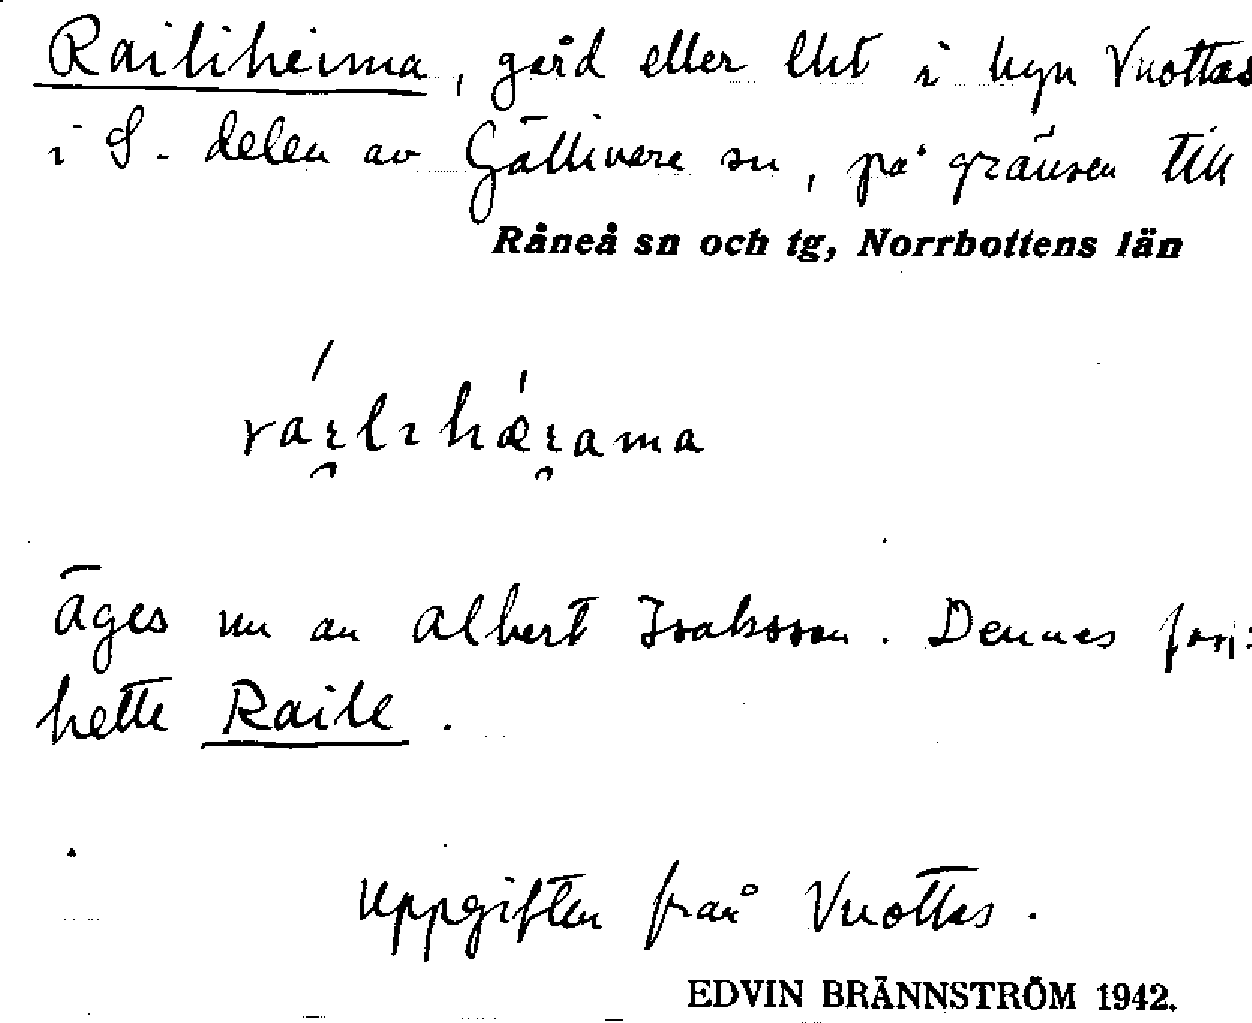 Railiheima, gård eller lht i byn Vuottas
i S. delen av Gällivare sn, på gränsen till
Råneå sn och tg, Norrbottens län
äges nu av Albert Isaksson. Dennes farf:
hette Raile.
Uppgiften från Vuottas.
EDVIN BRÄNNSTRÖM 1942.